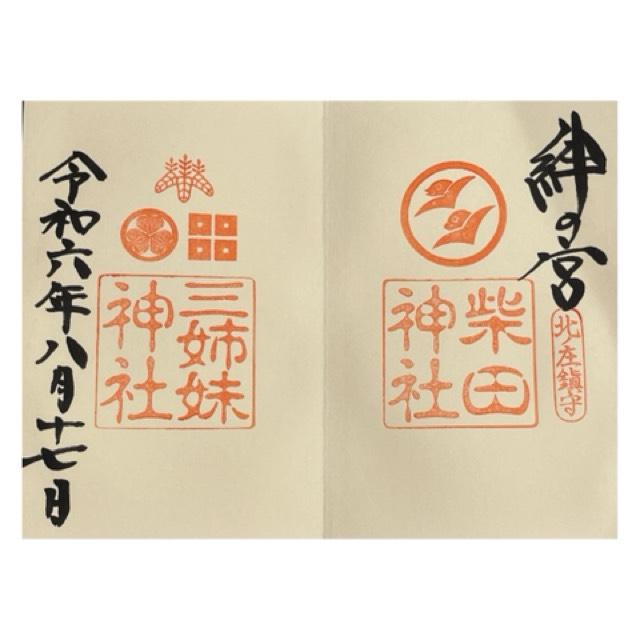 絆の宮
北ノ庄鎮守
柴田
神社
三姉妹
神社
令和六年八月十七日